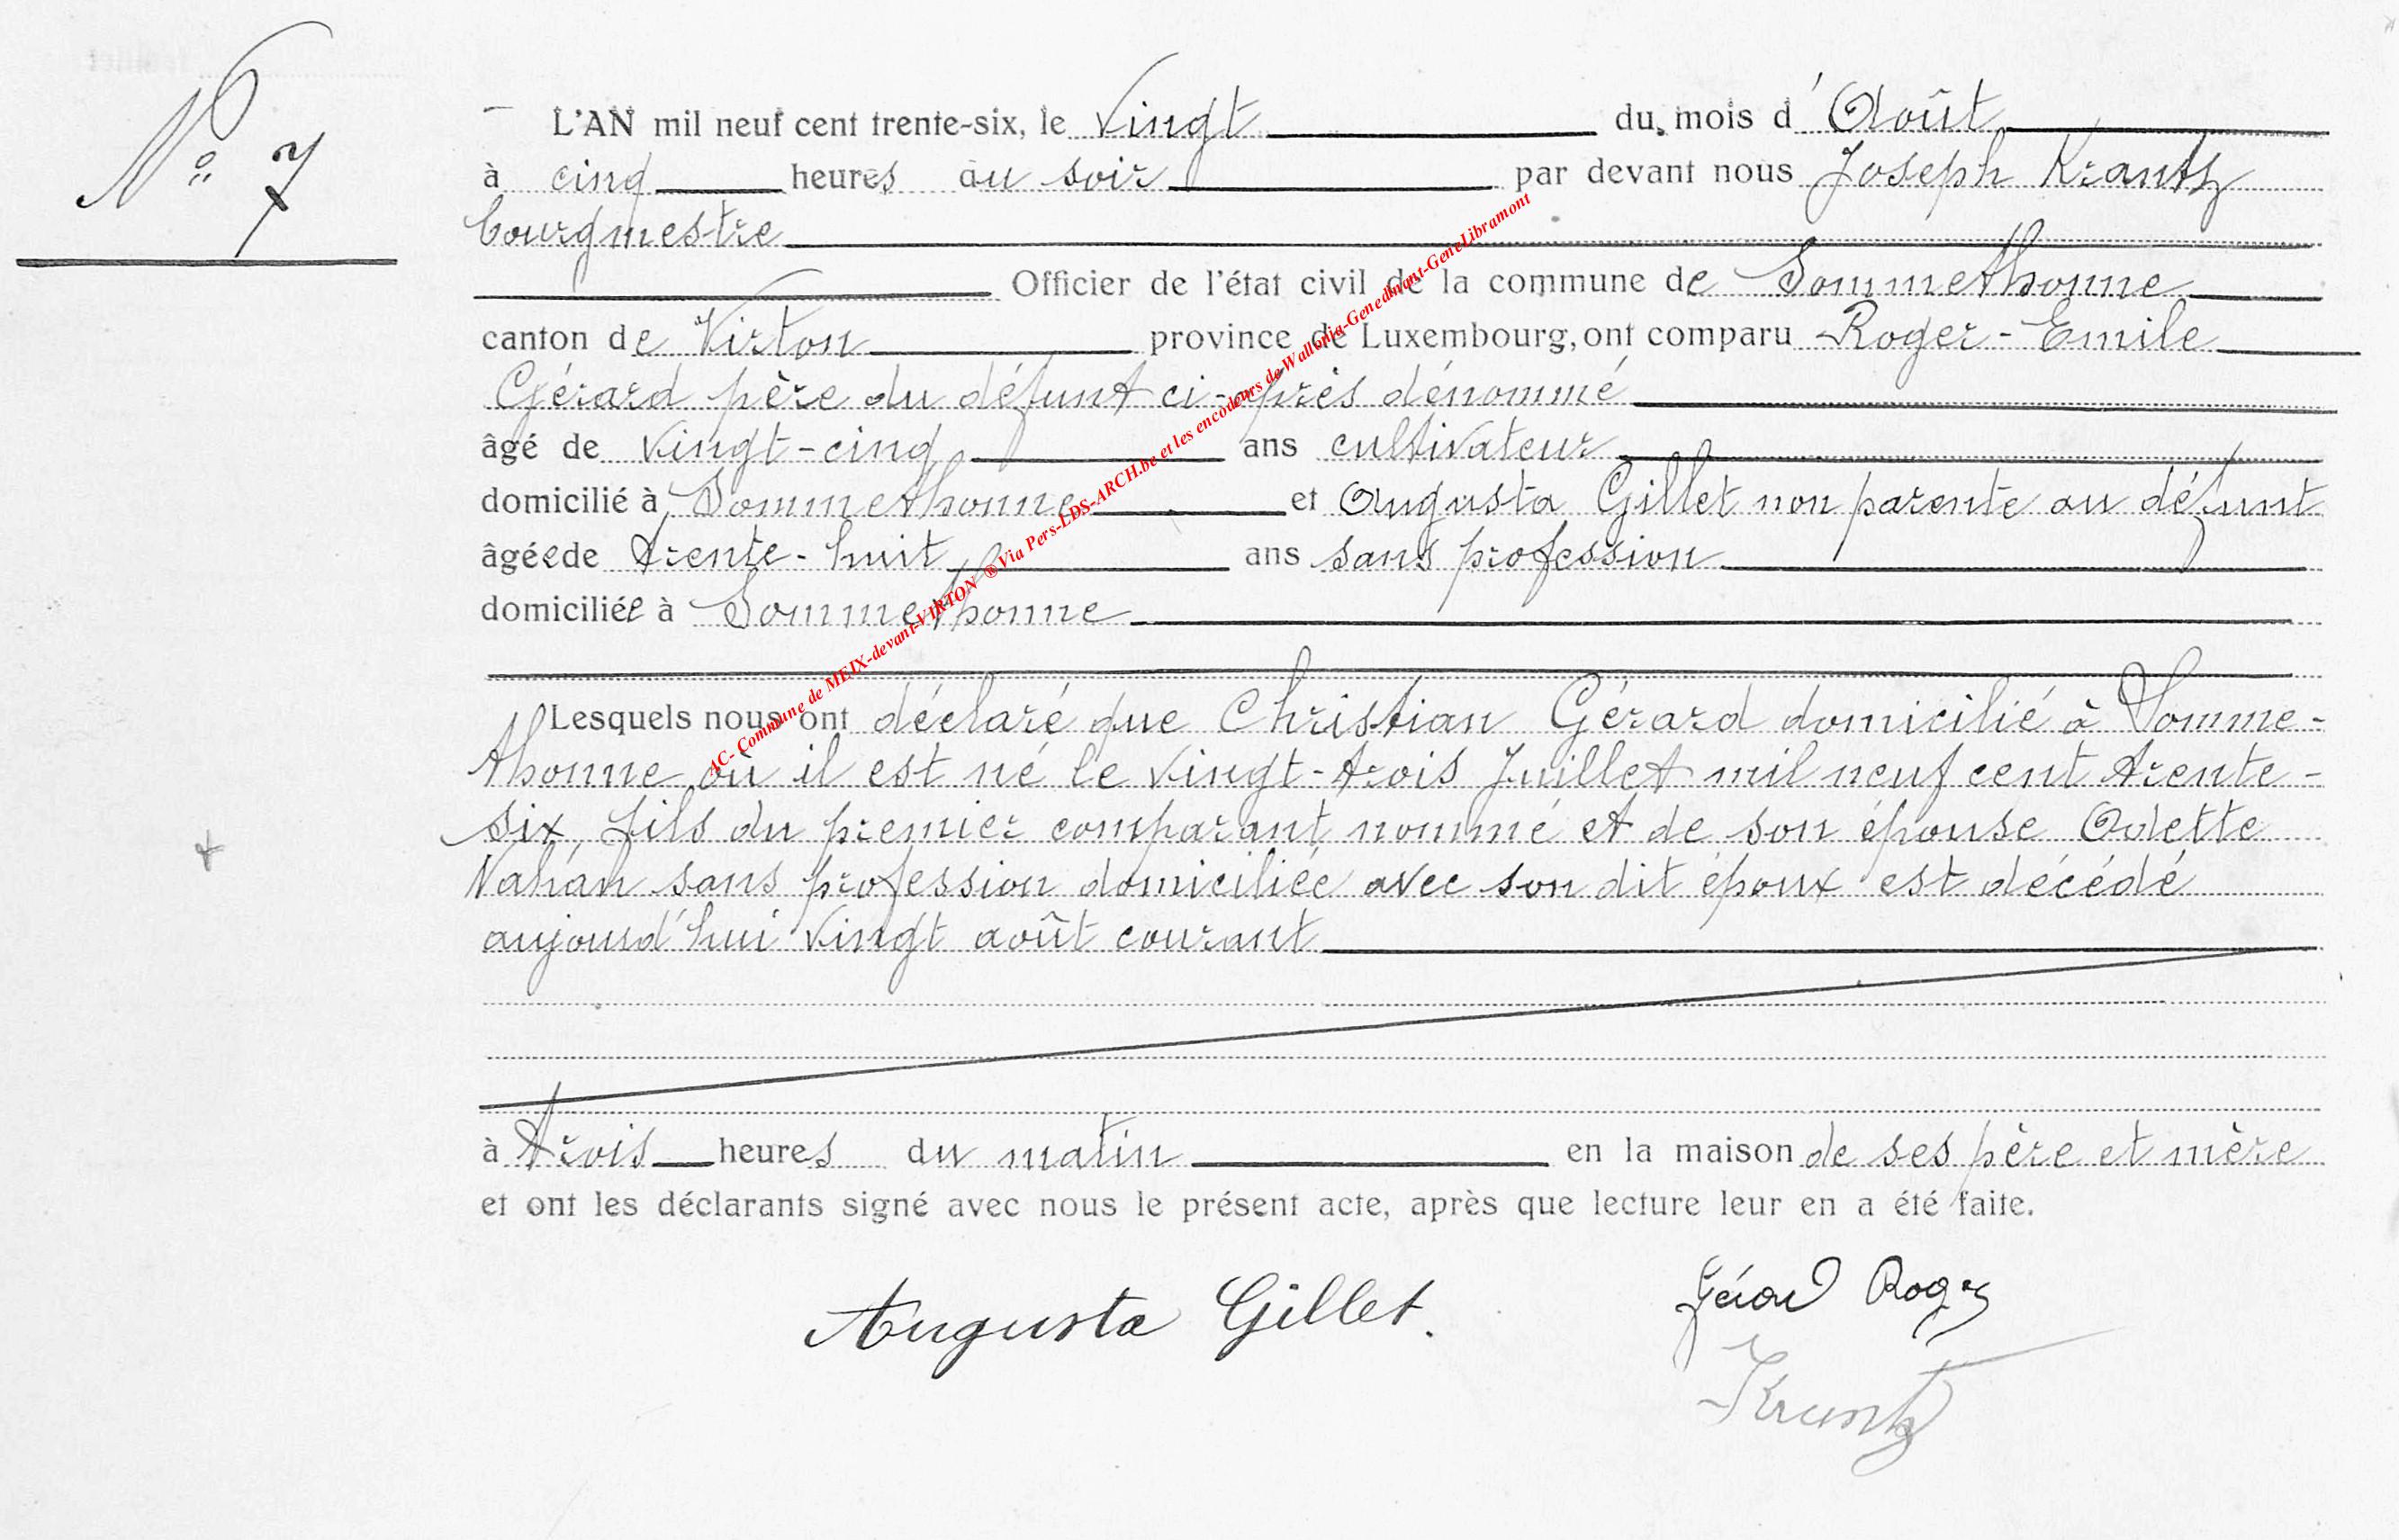 N° 7
L'AN mil neuf cent trente-six, le Vingt du mois d'Août
à cinq heures du soir par devant nous Joseph Krantz
bourgmestre
Officier de l'état civil de la commune de Sommethonne
canton de Virton province de Luxembourg, ont comparu Roger-Emile
Gérard père du défunt ci-après dénommé
âgé de vingt-cinq ans cultivateur
domicilié à Sommethonne et Augusta Gillet non parente au défunt
âgée de trente-huit ans sans profession
domiciliée à Sommethonne
Lesquels nous ont déclaré que Christian Gérard domicilié à Somme-
thonne où il est né le vingt-trois Juillet mil neuf cent trente-
six, fils du premier comparant nommé et de son épouse Odette
Nahan sans profession domiciliée avec son dit époux est décédé
aujourd'hui vingt août courant
à trois heures du matin en la maison de ses père et mère
et ont les déclarants signé avec nous le présent acte, après que lecture leur en a été faite.
Augusta Gillet. Gérard Roger
Krantz
AC- Commune de MEIX-devant-VIRTON ® Via Pers-LDS-ARCH.be et les encodeurs de Wallonia-Genedinant-GeneLibramont